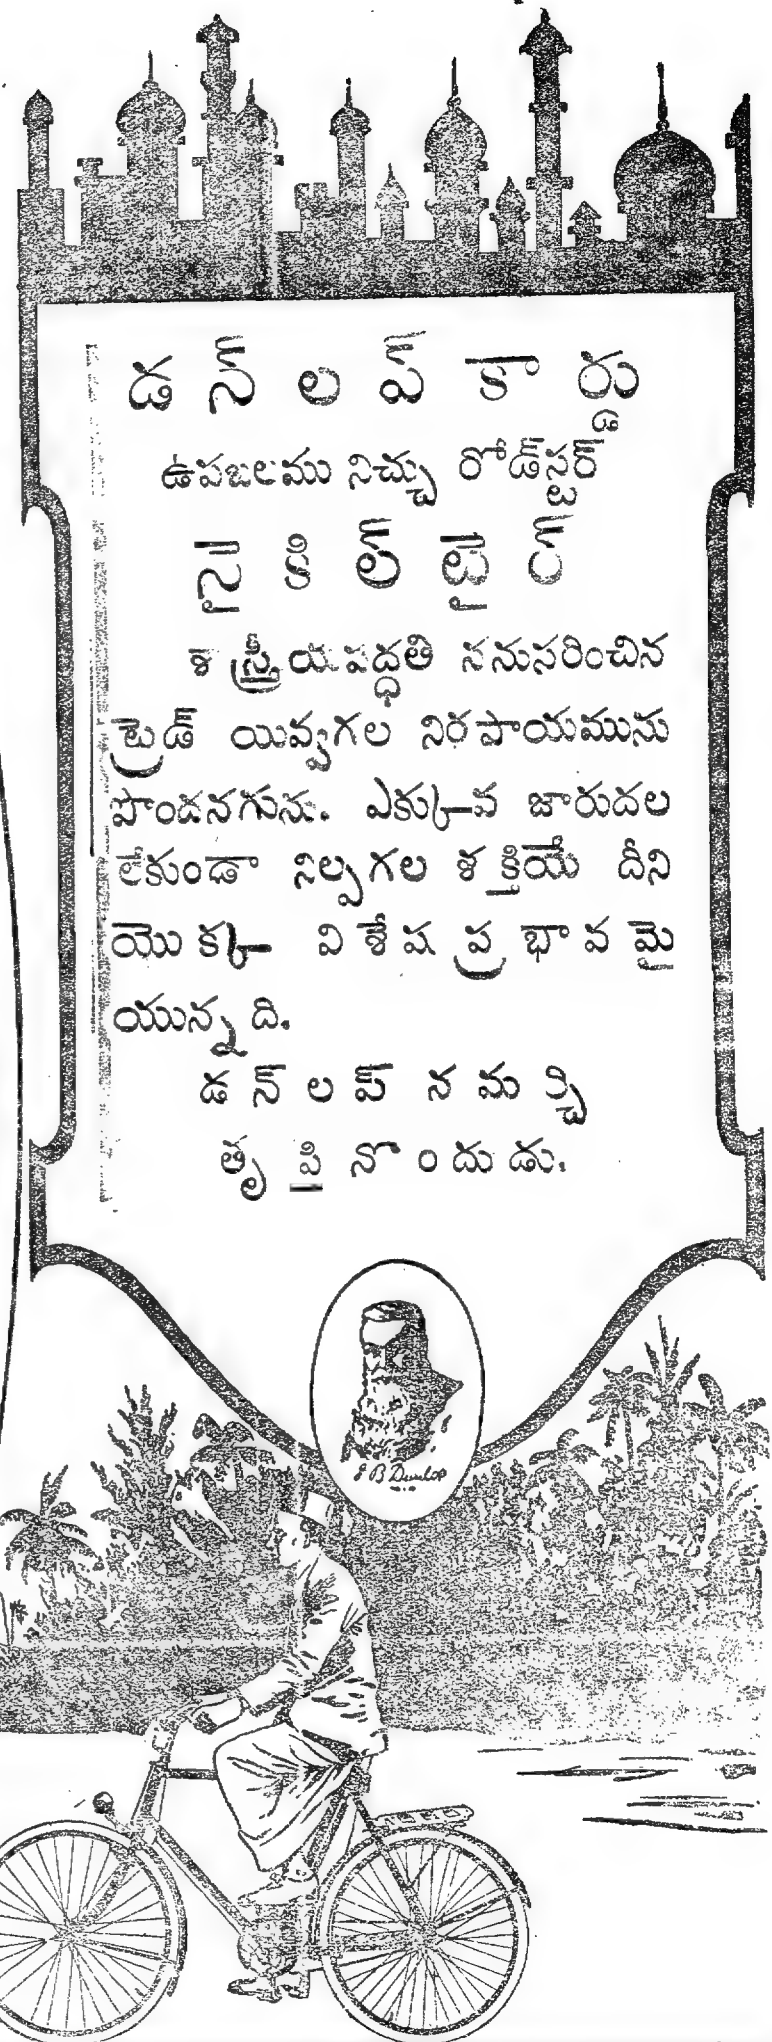 డన్‌లప్ కార్డు
ఉపబలము నిచ్చు రోడ్‌స్టర్
సైకిల్ టైర్
శాస్త్రీయపద్ధతి ననుసరించిన
ట్రెడ్ యివ్వగల నిరపాయమును
పొందనగును. ఎక్కువ జారుదల
లేకుండా నిల్పగల శక్తియే దీని
యొక్క విశేష ప్రభావమై
యున్నది.
డన్‌లప్ నమ్మి
తృప్తి నొందుడు.
J B Dunlop